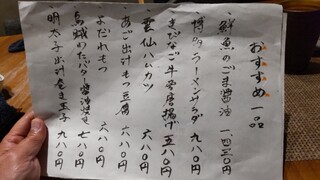 おすすめ一品
・鮮魚のごま醤油 一、四三〇円
・博多ラーメンサラダ 九八〇円
・きびなご半唐揚げ 五八〇円
・雲仙ハムカツ 六八〇円
・あご出汁もつ豆腐 六八〇円
・よだれもつ 六八〇円
バター醤油 七八〇円
・明太子出汁巻き玉子 九八〇円